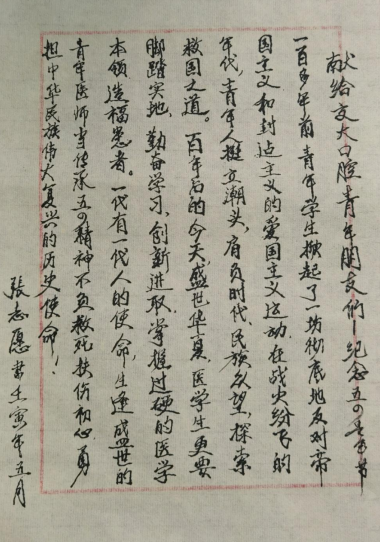 献给交大口腔青年朋友们—纪念五四青年节
一百多年前青年学生掀起了一场彻底地反对帝
国主义和封建主义的爱国主义运动。在战火纷飞的
年代，青年人挺立潮头，肩负时代民族众望，探索
救国之道。百年后的今天，盛世华夏，医学生更要
脚踏实地，勤奋学习，创新进取，掌握过硬的医学
本领，造福患者。一代有一代人的使命，生逢盛世的
青年医师当传承五四精神不负救死扶伤初心，勇
担中华民族伟大复兴的历史使命！
张志愿书壬寅年五月